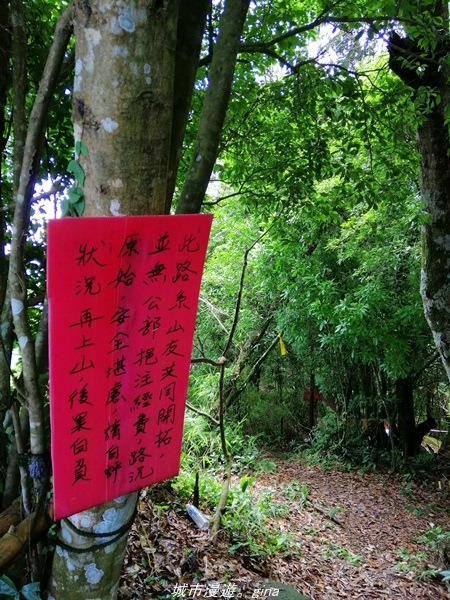 此路系山友共同開拓,
並無公部挹注經費,路況
原始,安全堪慮,請自評
狀況再上山,後果自負
城市漫遊。gina